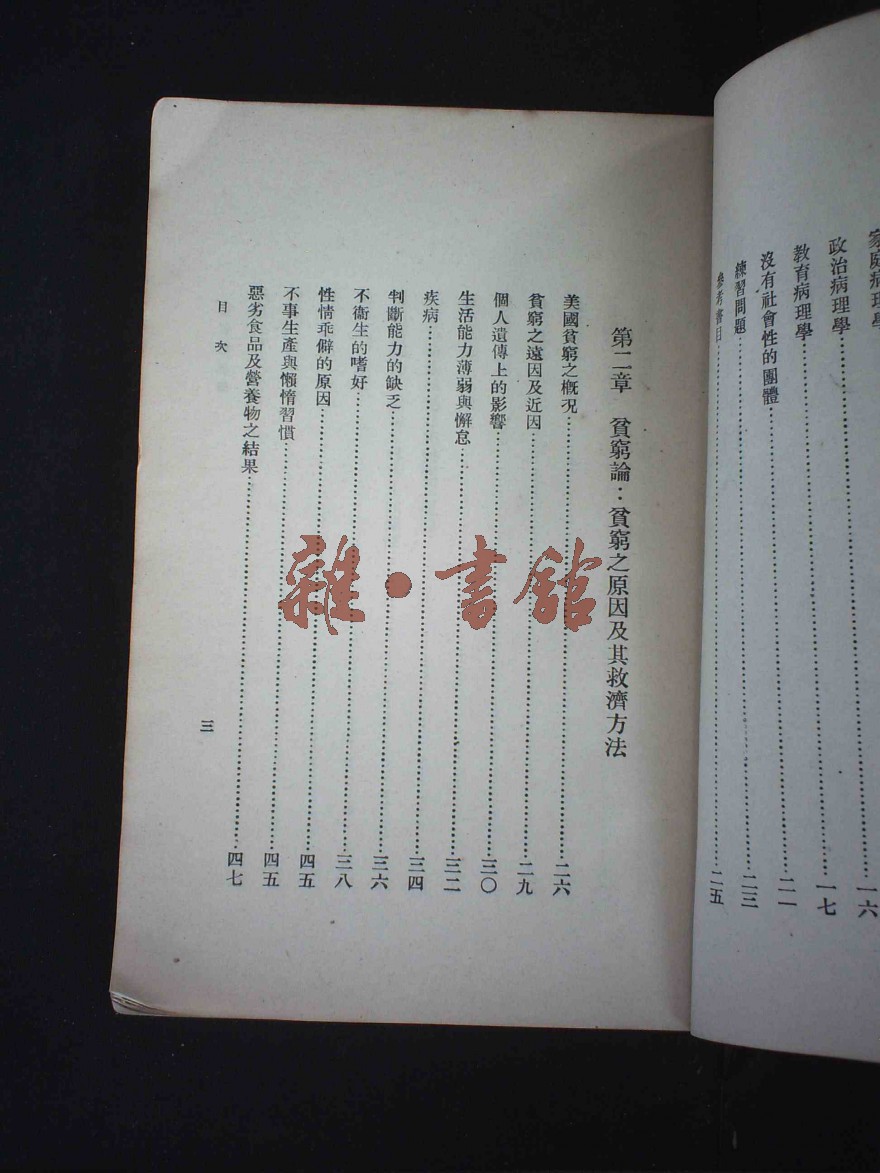 家庭病理學……一六
政治病理學……一七
教育病理學……二一
沒有社會性的團體
練習問題……二三
參考書目……二五
第二章　貧窮論：貧窮之原因及其救濟方法
美國貧窮之概況……二六
貧窮之遠因及近因……二九
個人遺傳上的影響……三〇
生活能力薄弱與懈怠……三二
疾病……三四
判斷能力的缺乏……三六
不衛生的嗜好……三八
性情乖僻的原因……四五
不事生產與懶惰習慣……四五
惡劣食品及營養物之結果……四七
目次
三
雜·書館